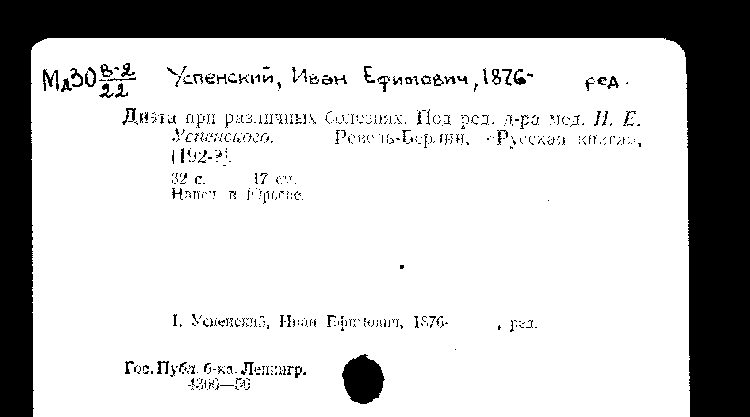 Мд30 В-2/22 Успенский, Иван Ефимович, 1876- ред.
Диэта при различных болезнях. Под ред. д-ра мед. И. Е.
Успенского. Ревель-Берлин, «Русская книга»,
[192-?].
32 с. 17 см.
Напеч. в Юрьеве.
1. Успенский, Иван Ефимович, 1876- , ред.
Гос. Публ. б-ка. Ленингр.
4300—50